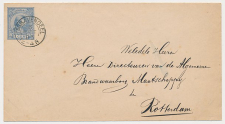 Weledele Heeren
Heeren Directeuren van de Algemeene
Brandwaarborg Maatschappij
te
Rotterdam